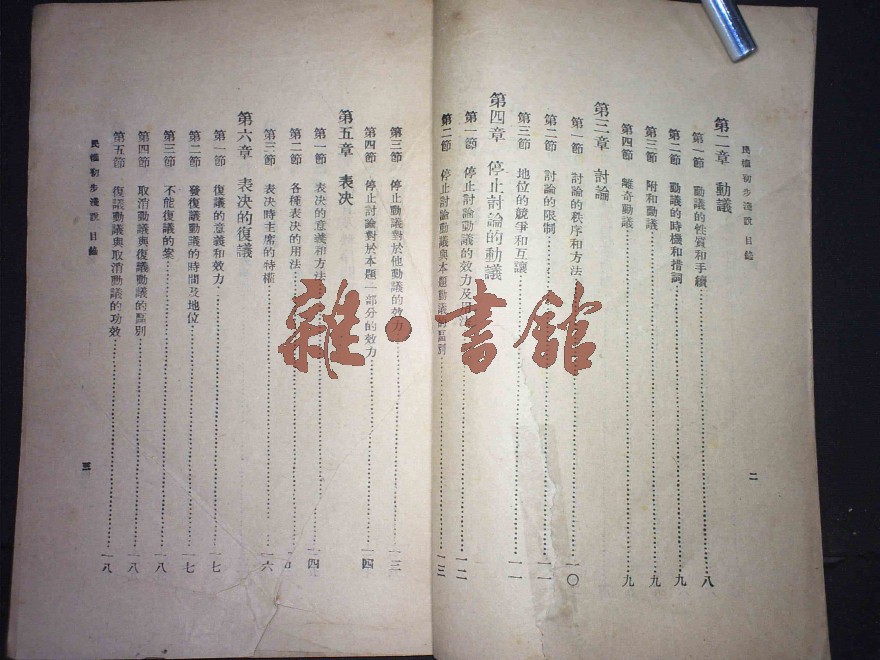 民權初步淺說 目錄
二
第二章 動議
第一節 動議的性質和手續……八
第二節 動議的時機和措詞……九
第三節 附和動議……九
第四節 離奇動議……九
第三章 討論
第一節 討論的秩序和方法……一〇
第二節 討論的限制……一一
第三節 地位的競爭和互讓……一一
第四章 停止討論的動議
第一節 停止討論動議的效力及用法……一二
第二節 停止討論動議與本題動議的區別……一三
第三節 停止動議對於他動議的效力……一三
第四節 停止討論對於本題一部分的效力……一四
第五章 表決
第一節 表決的意義和方法……一四
第二節 各種表決的用法
第三節 表決時主席的特權……一六
第六章 表決的復議
第一節 復議的意義和效力……一七
第二節 發復議動議的時間及地位……一七
第三節 不能復議的案……一八
第四節 取消動議與復議動議的區別……一八
第五節 復議動議與取消動議的功效……一八
民權初步淺說 目錄
三
雜·書館